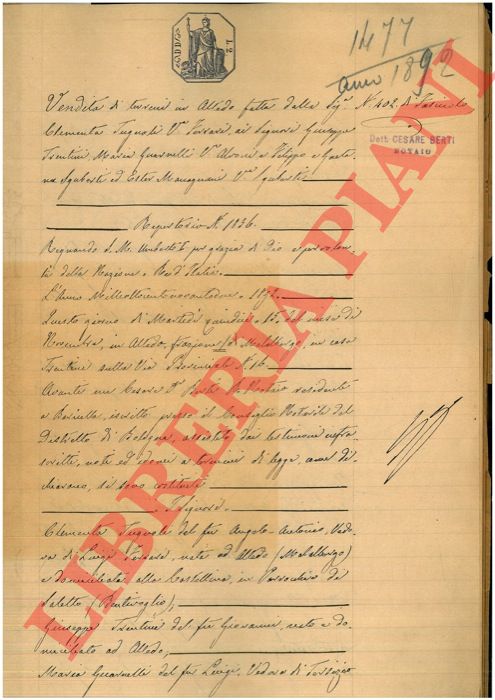 1477
Anno 1892
Vendita di terreni in Altedo fatta dalla Sig.ª N. 402. di Fascicolo
Clementa Tugnoli V.ª Ferrari, ai Signori Giuseppe
Dott. CESARE BERTI
NOTAIO
Trentini Maria Guarnelli V.ª e Filippo e Gaeta-
na Sgubersti ed Ester V.ª
Repertorio N. 1836.
Regnando S. M. Umberto I per grazia di Dio e per volon-
tà della Nazione Re d'Italia.
L'Anno Milleottocentonovantadue. 1892.
Questo giorno di Martedì quindici 15. del mese di
Novembre, in Altedo, frazione di Malalbergo, in casa
Trentini sulla Via Provinciale N. 16.
Avanti me Cesare D.r Berti Notaro residente
a Baricella, iscritto presso il Consiglio Notarile del
Distretto di Bologna, assistito dai testimoni infra-
scritti, noti ed idonei a termini di legge, come di-
chiarano, si sono costituiti
I Signori
Clementa Tugnoli del fu Angelo Antonio, Vedo-
va di Luigi Ferrari, nata ad Altedo (Malalbergo)
e domiciliata alla Castellina, in Parrocchia di
Saletto (Bentivoglio),
Giuseppe Trentini del fu Giovanni, nato e do-
miciliato ad Altedo,
Maria Guarnelli del fu Luigi, Vedova di
LIBRERIA PIANI